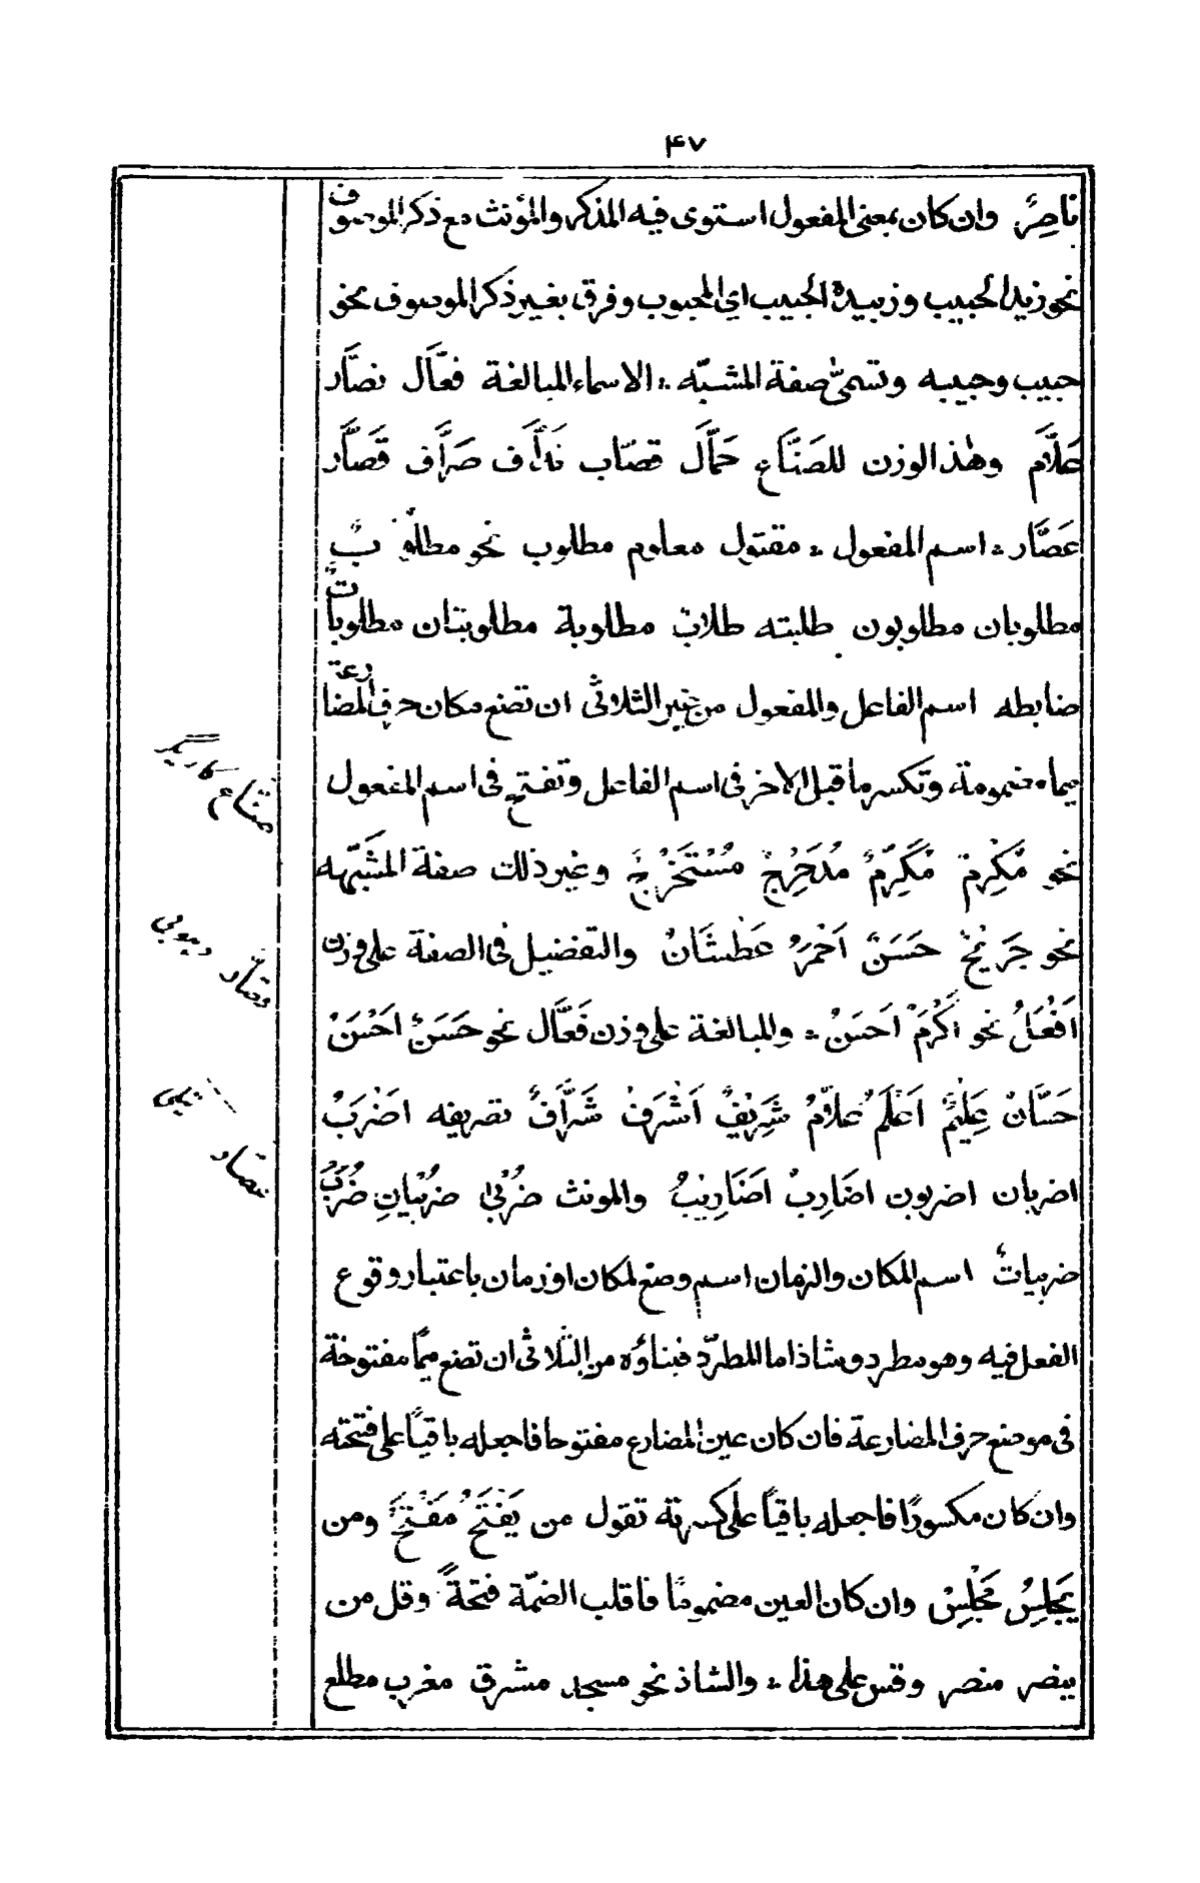 ۴۷
ناصِرٌ وان كان بمعنى المفعول استوى فيه المذكر والمؤنث مع ذكر الموصوف
نحو زيد الحبيب وزبيدة الحبيب اي المحبوب وفرق بغير ذكر الموصوف نحو
حبيب وحبيبه وتسمىّٰ صفة المشبّه ؞ الاسماء المبالغة فعَّال نصَّار
عَلَّام وهٰذ الوزن للصَنَّاعِ حَمَّال قصّاب نَدَّاف صَرَّاف قَصَّار
عَصَّار ؞ اسم المفعول ؞ مقتول معلوم مطلوب نحو مطلوبٌ
مطلوبان مطلوبون طلبته طلابٌ مطلوبة مطلوبتان مطلوباتٌ
ضابطه اسم الفاعل والمفعول من غير الثلاثىٰ ان تضع مكان حرف المضارعة
ميما مضمومة وتكسر ما قبل الاخر فى اسم الفاعل وتفتح فى اسم المفعول
نحو مُكْرِمٌ مُكَرِّمٌ مُدَحْرِجٌ مُسْتَخْرِجٌ وغير ذلك صفة المشَبّهه
نحو جَرِيْحٌ حَسَنٌ اَحْمَرُ عَطْشَانُ والتفضيل فى الصفة على وزن
اَفْعَلُ نحو اَكْرَمُ اَحسَنُ ؞ والمبالغة على وزن فَعَّال نحو حَسَنٌ اَحْسَنُ
حَسَّانٌ عَلِيْمٌ اَعْلَمُ عَلَّامٌ شَرِيْفٌ اَشْرَفُ شَرَّافٌ تصريفه اضْرَبُ
اضربان اضربون اضَارِبُ اضَارِيبُ والمونث ضُرْبىٰ ضُرْبَيانِ ضُرَبٌ
ضربياتٌ اسم المكان والزمان اسم وضع لمكان او زمان باعتبار وقوع
الفعل فيه وهو مطرد وشاذ اما المطرّد فبناؤه من الثلاثى ان تضع ميمًا مفتوحة
فى موضع حرف المضارعة فان كان عين المضارع مفتوحا فاجعله باقيًا على فتحته
وان كان مكسورًا فاجعله باقياً على كسرته تقول من يَفْتَحُ مَفْتَحٌ ومن
يَجْلِسُ مَجْلِسٌ وان كان العين مضمومًا فاقلب الضمّة فتحةً وقل من
ينصر منصر وقس على هذا ؞ والشاذ نحو مسجد مشرق مغرب مطلع
صنّاع كاريگر
قصّار دهوبى